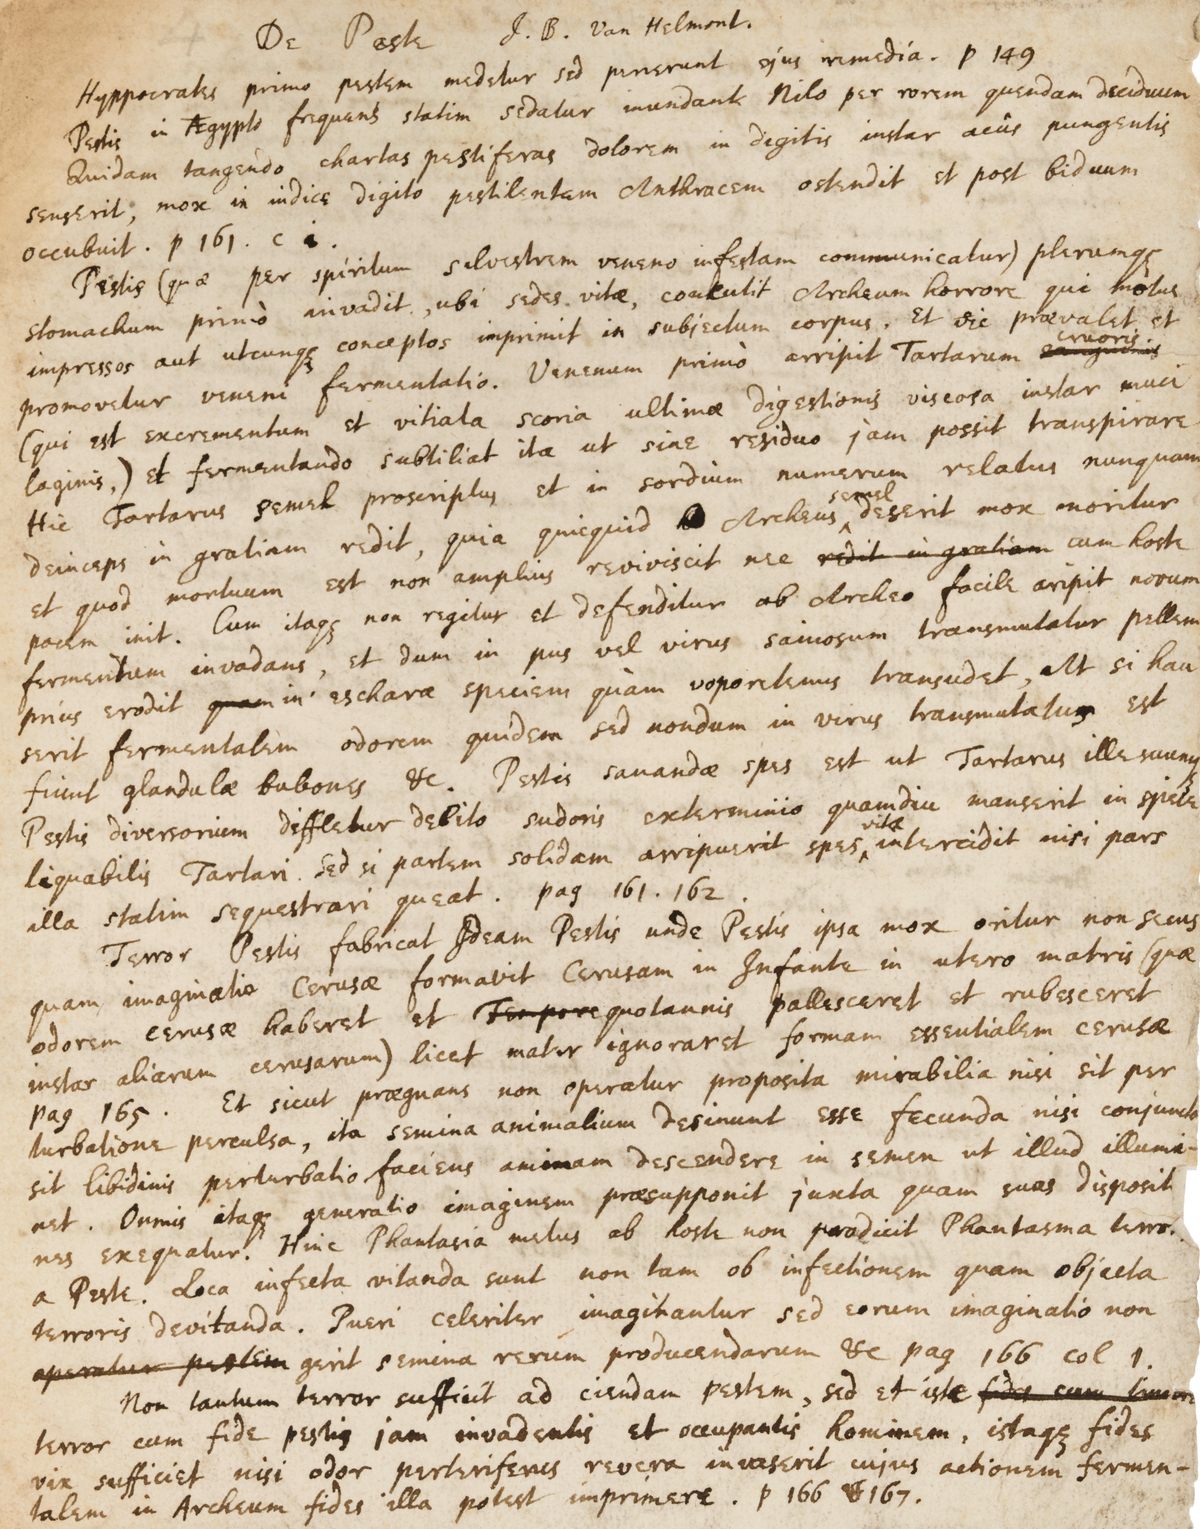 De Peste J. B. Van Helmont.
Hyppocrates primo pestem medetur sed perierunt ejus remedia. p 149
Pestis in Ægypto frequens statim sedatur inundante Nilo per rorem quendam deciduum
Quidam tangendo chartas pestiferas dolorem in digitis instar acûs pungentis
senserit, mox in indice digito pestilentem Anthracem ostendit et post biduum
occubuit. p 161. c 1.
Pestis (quæ per spiritum silvestrem veneno infestam communicatur) plerumqꝫ
stomachum primò invadit, ubi sedes vitæ, concutit Archeum horrore qui motus
impressos aut utcunqꝫ conceptos imprimit in subjectum corpus. Et sic prævalet et
promovetur veneni fermentatio. Venenum primò arripit Tartarum sanguinis cruoris.
(qui est excrementum et vitiata scoria ultimæ digestionis viscosa instar muci
laginis,) et fermentando subtiliat ita ut sine residuo jam possit transpirare
Hic Tartarus semel proscriptus et in sordium numerum relatus nunquam
deinceps in gratiam redit, quia quicquid Archeus semel deserit mox moritur
et quod mortuum est non amplius reviviscit nec redit in gratiam cum hoste
pacem init. Cum itaqꝫ non regitur et defenditur ab Archeo facile aripit novum
fermentum invadans, et dum in pus vel virus saniosum transmutatur pellem
prius erodit quam in escharæ speciem quàm vaporetenus transudet, At si hau
serit fermentalem odorem quidem sed nondum in virus transmutatus est
fiunt glandulæ bubones &c. Pestis sanandæ spes est ut Tartarus ille
Pestis diversorium diffletur debito sudoris exterminio quamdiu manserit in specie
liquabilis Tartari. Sed si partem solidam arripuerit spes vitæ intercidit nisi pars
illa statim sequestrari queat. pag 161. 162.
Terror Pestis fabricat Ideam Pestis unde Pestis ipsa mox oritur non secus
quam imaginatio Cerusæ formavit Cerusam in Infante in utero matris (quæ
odorem cerusæ haberet et Tempore quotannis pallesceret et rubesceret
instar aliarum cerusarum) licet mater ignoraret formam essentialem cerusæ
pag 165. Et sicut prægnans non operatur proposita mirabilia nisi sit per
turbatione perculsa, ita semina animalium desinunt esse fecunda nisi conjuncta
sit libidinis perturbatio faciens animam descendere in semen ut illud illumi-
net. Omnis itaqꝫ generatio imaginem præsupponit juxta quam suas disposit
nes exequatur. Hinc Phantasia metus ab hoste non producit Phantasma terro.
a Peste. Loca infecta vitanda sunt non tam ob infectionem quam objecta
terroris devitanda. Pueri celeriter imaginantur sed eorum imaginatio non
operatur pestem gerit semina rerum producendarum &c pag 166 col 1.
Non tantum terror sufficit ad ciendam pestem, sed et iste fides cum timore
terror cum fide pestis jam invadentis et occupantis hominem, istaqꝫ fides
vix sufficiet nisi odor pesteriferus revera invaserit cujus actionem fermen-
talem in Archeum fides illa potest imprimere. p 166 & 167.